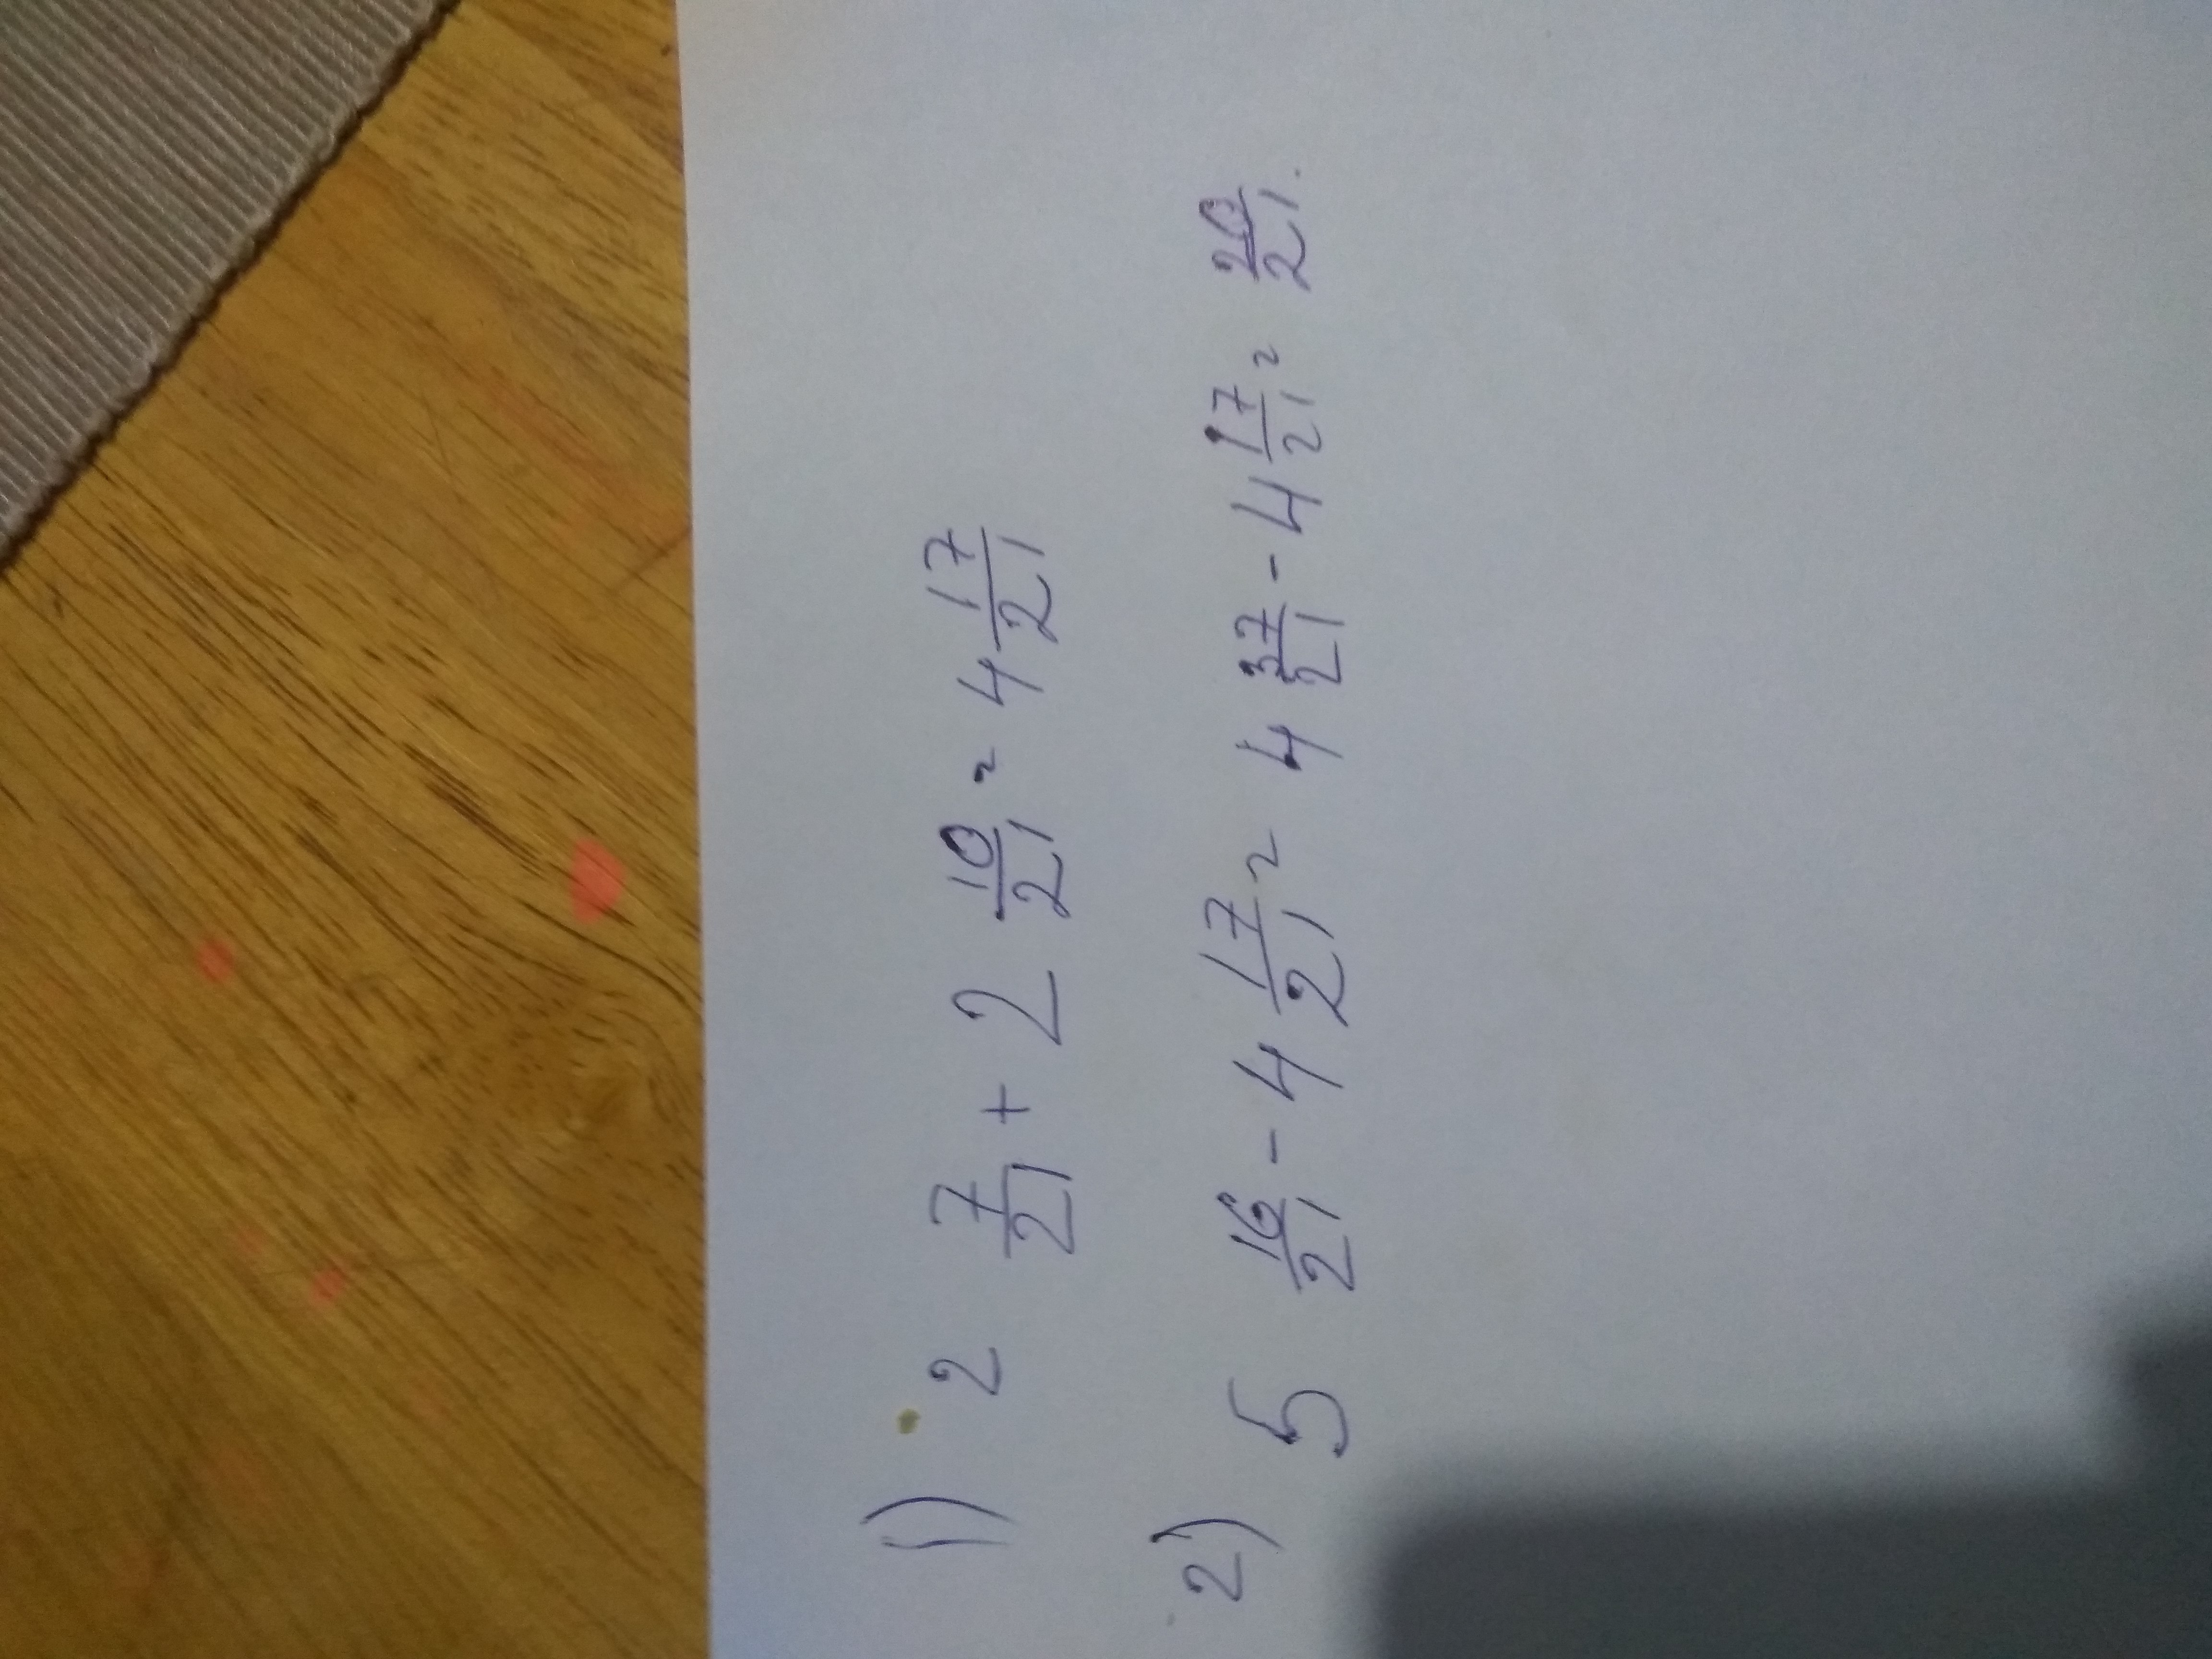 1) 2 7/21 + 2 10/21 = 4 17/21
2) 5 16/21 - 4 17/21 = 4 37/21 - 4 17/21 = 20/21.